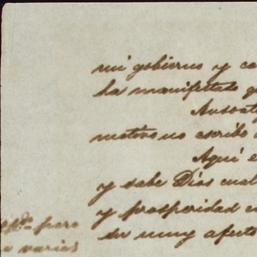 mi gobierno y ca
ha manifestado q
motivo no escribo
Aquí e
y sabe Dios cual
y prosperidad e
su muy afecto
pero
varias